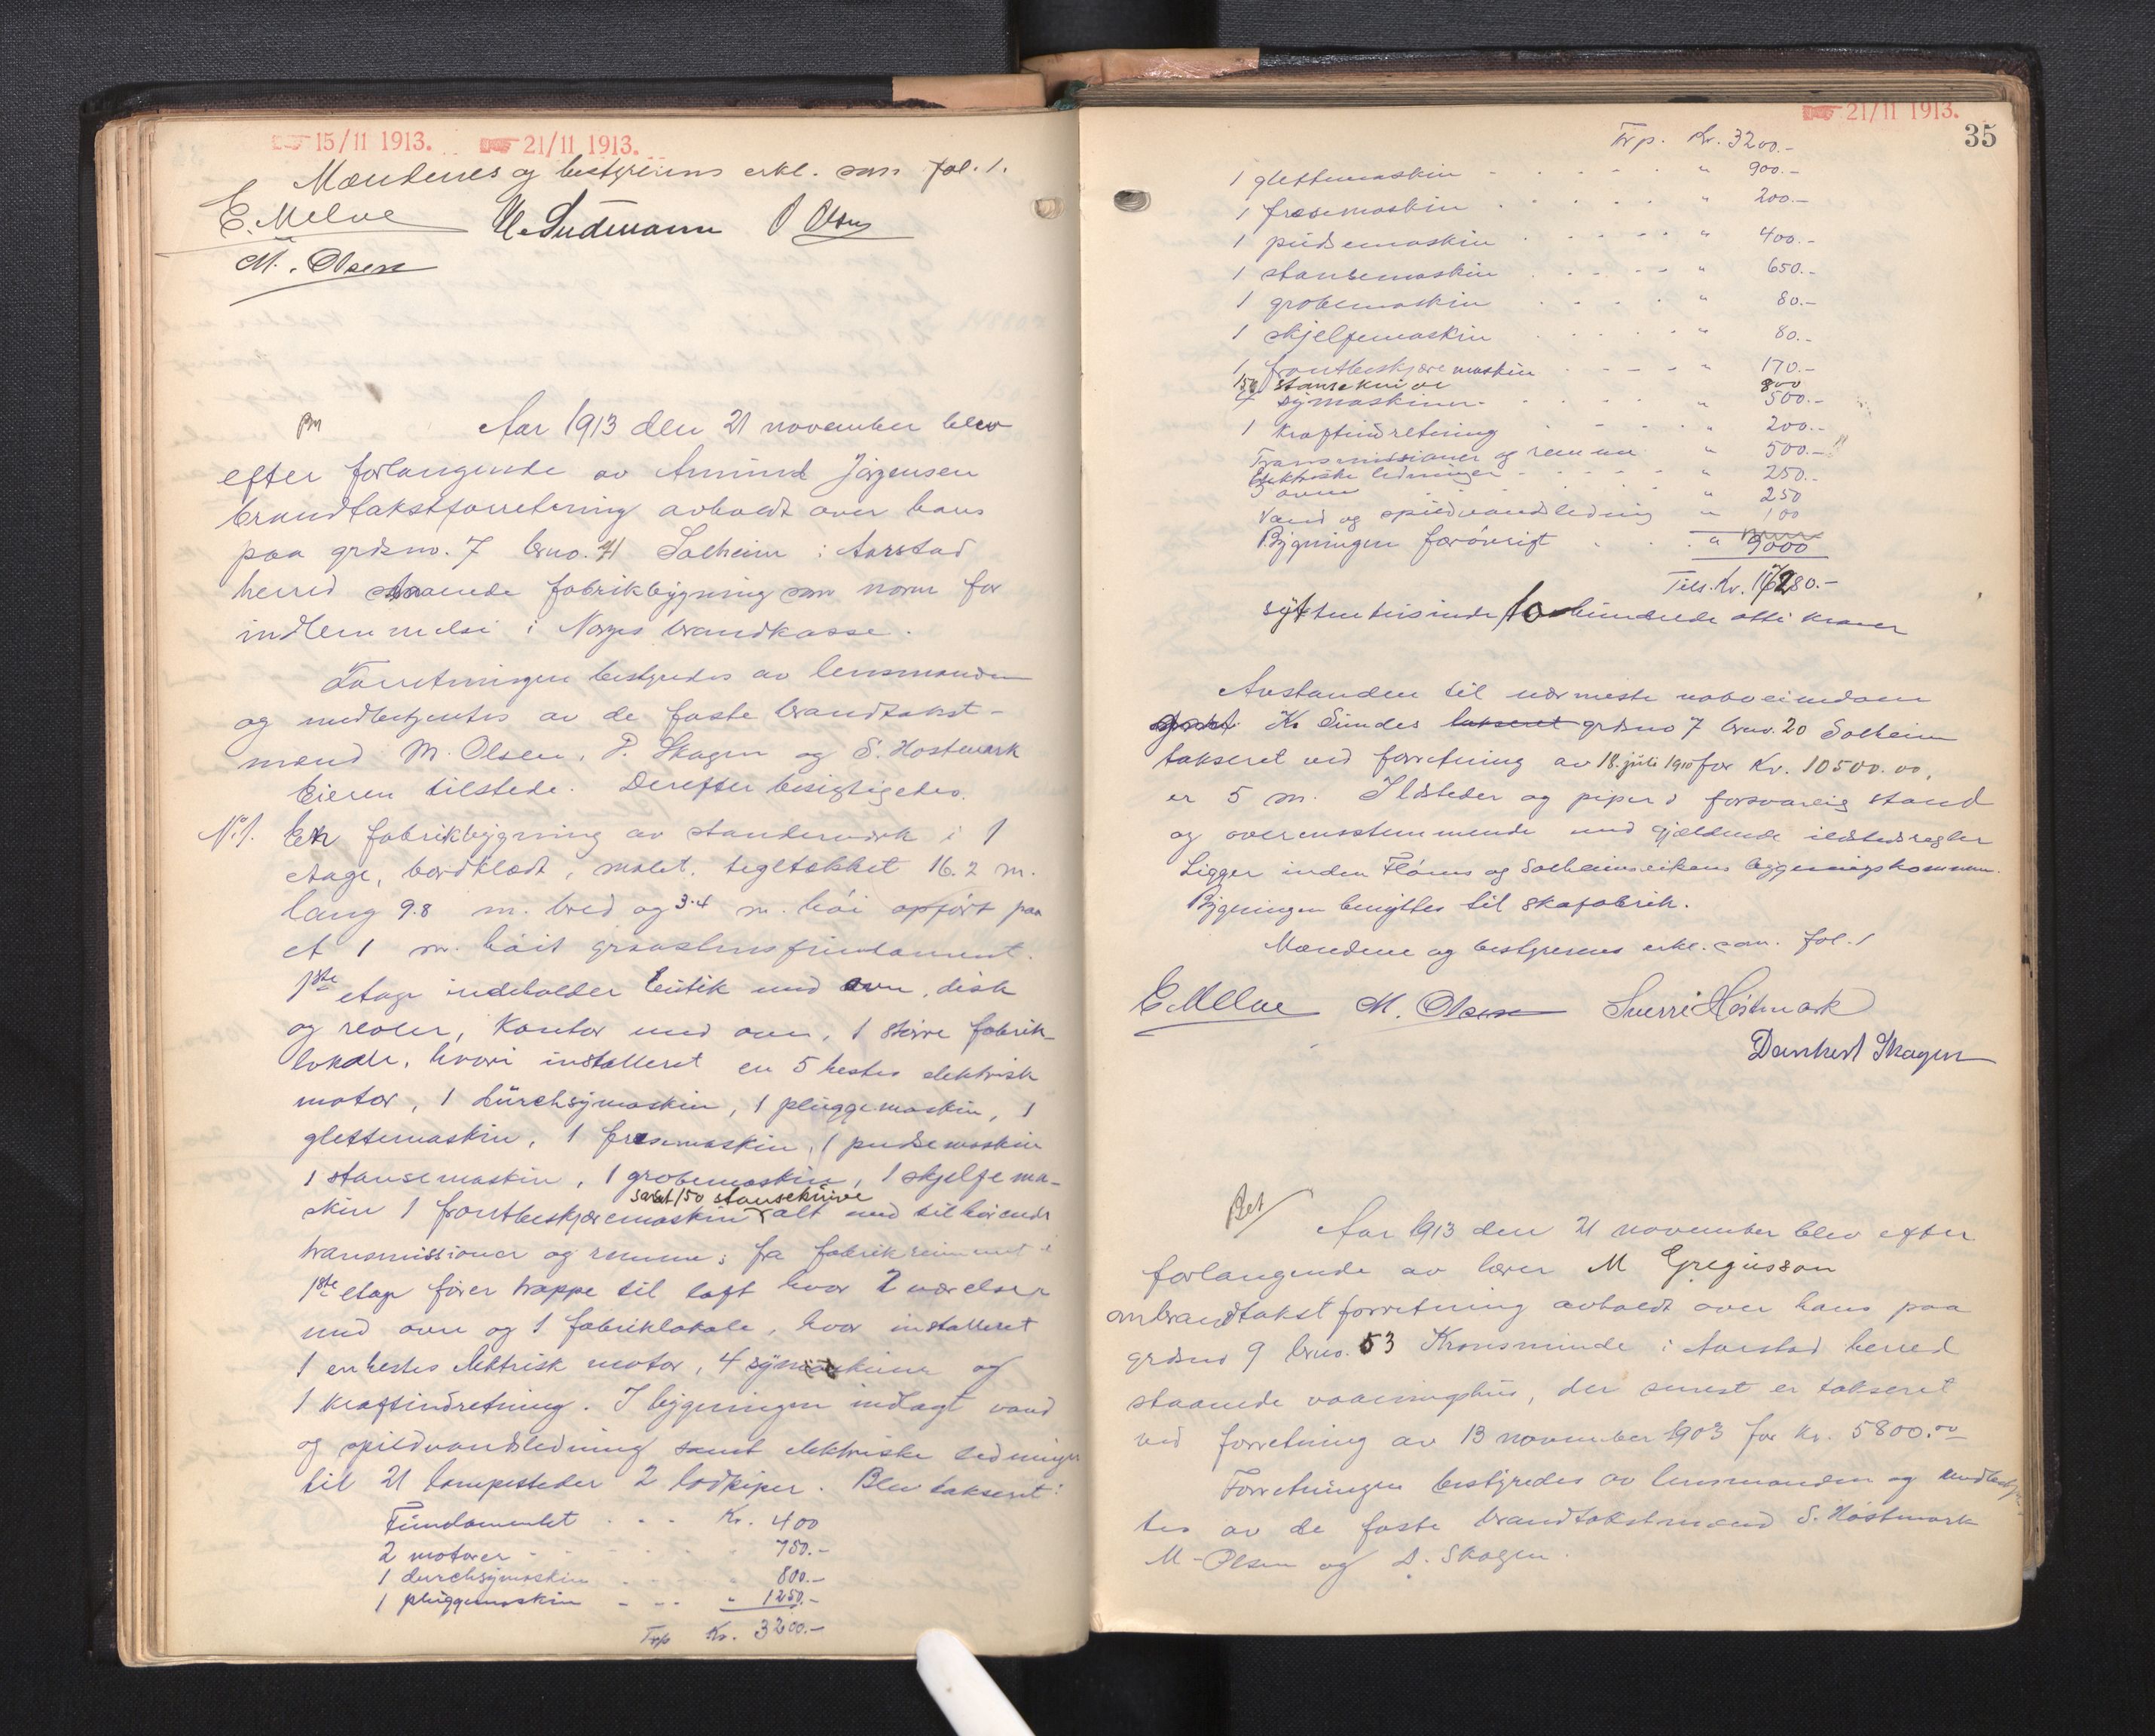 15/11 1913. 21/11 1913.
Mændenes og bestyrerens erkl. som fol. 1.
E. Melve P Olsen
M. Olsen
Aar 1913 den 21 november blev
efter forlangende av Amund Jørgensen
brandtakstforretning avholdt over hans
paa grdsno. 7 brno. 41 Solheim i Aarstad
herred staaende fabrikbygning som norm for
indlemmelse i Norges brandkasse.
Forretningen bestyredes av lensmanden
og medbetjentes av de faste brandtakst-
mænd M. Olsen, P. Skagen og S. Hostmark
Eieren tilstede. Derefter besigtigedes.
No. 1. En fabrikbygning av standerverk i 1
etage, bordklædt, malet, tegltækket 16.2 m.
lang 9.8 m. bred og 3.4 m. høi opført paa
et 1 m. høit graastensfundament.
1ste etage indeholder butik med ovn, disk
og reoler, kontor med ovn, 1 større fabrik-
lokale, hvori installeret en 5 hestes elektrisk
motor, 1 durchsymaskin, 1 pluggemaskin, 1
glettemaskin, 1 fræsemaskin, 1 pudsemaskin
1 stansemaskin, 1 grobemaskin, 1 skjelfema-
samt 150 stanseknive
skin 1 frontbeskjæremaskin alt med tilhørende
transmissioner og remme; fra fabrikrummet i
1ste etage fører trappe til loft hvor 2 værelser
med ovn og 1 fabriklokale, hvor installeret
1 en hestes elektrisk motor, 4 symaskiner og
1 kraftindretning. I bygningen indlagt vand
og spildvandsledning samt elektriske ledninger
til 21 lampesteder 2 lodpiper. Blev takseret:
Fundamentet . . . Kr. 400
2 motorer - - - 750.-
1 durchsymaskin . . . " 800.-
1 pluggemaskin - - - " 1250.-
Trp Kr. 3200.-
21/11 1913.
35
Trp. Kr. 3200.-
1 glettemaskin - - - " 900.-
1 fræsemaskin . . . " 200.-
1 pudsemaskin . . . " 400.-
1 stansemaskin . . . " 650.-
1 grobemaskin . . . " 80.-
1 skjelfemaskin . . . 80.-
1 frontbeskjæremaskin - - - " 170.-
150 stanseknive 800
4 symaskiner - . . . " 500.-
1 kraftindretning - - - " 200.-
Transmissioner og remme " 500.-
Elektriske ledninger - - - " 250.-
3 ovne . . . " 250
Vand og spildvandsledning " 100
Bygningen forøvrigt . . . " 9000
Tils. Kr. 17280.-
sytten tusinde to hundrede otti kroner
Avstanden til nærmeste naboeiendom
Kr Sundes takseret grdsno 7 brno. 20 Solheim
takseret ved forretning av 18. juli 1910 for Kr. 10500.00,
er 5 m. Ildsteder og piper i forsvarlig stand
og overensstemmende med gjældende ildstedsregler
Ligger inden Fløens og Solheimsvikens bygningskommun.
Bygningen benyttes til skofabrik.
Mændene og bestyrerens erkl. som. fol. 1
E. Melve M. Olsen Sverre Høstmark
Dankert Skagen
Aar 1913 den 21 november blev efter
forlangende av lærer M Gregusson
ombrandtakstforretning avholdt over hans paa
grdsno 9 brno. 53 Kronsminde i Aarstad herred
staaende vaaningshus, der senest er takseret
ved forretning av 13 november 1903 for Kr. 5800.00
Forretningen bestyredes av lensmanden og medbetjen-
tes av de faste brandtakstmænd S. Høstmark
M. Olsen og D. Skagen.